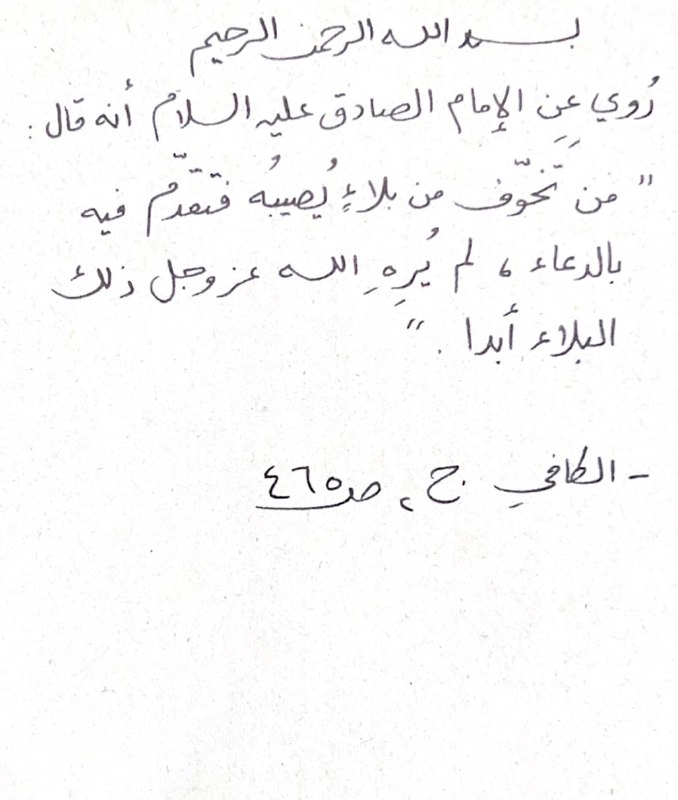 بسم الله الرحمن الرحيم
رُوي عَنِ الإمام الصادق عليه السلام أنه قال :
" مَن تَخَوَّف من بلاءٍ يُصيبُه فتقدَّم فيه
بالدعاء ، لم يُرِهِ الله عز وجل ذلك
البلاء أبدا . "
- الكافي ج ، ص ٤٦٥